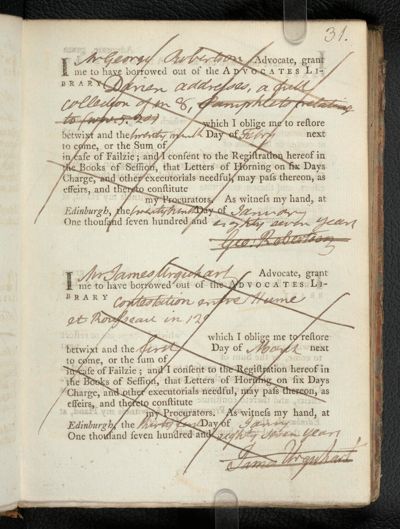 31.
I Mr George Robertson Advocate, grant
me to have borrowed out of the ADVOCATES LI-
BRARY Darien addresses, a full
collection of in 8, Pamphlets relating
to which I oblige me to restore
betwixt and the twenty ninth Day of Febry next
to come, or the Sum of
in case of Failzie; and I consent to the Registration hereof in
the Books of Session, that Letters of Horning on six Days
Charge, and other executorials needful, may pass thereon, as
effeirs, and thereto constitute
my Procurators. As witness my hand, at
Edinburgh, the twenty ninth Day of January
One thousand seven hundred and eighty seven years
Geo. Robertson
I Mr James Urquhart Advocate, grant
me to have borrowed out of the ADVOCATES LI-
BRARY Contestation entre Hume
et Rousseau in 12o
which I oblige me to restore
betwixt and the first Day of March next
to come, or the sum of
in case of Failzie; and I consent to the Registration hereof in
the Books of Session, that Letters of Horning on six Days
Charge, and other executorials needful, may pass thereon, as
effeirs, and thereto constitute
my Procurators. As witness my hand, at
Edinburgh, the thirty first Day of Janry
One thousand seven hundred and eighty seven years
James Urquhart